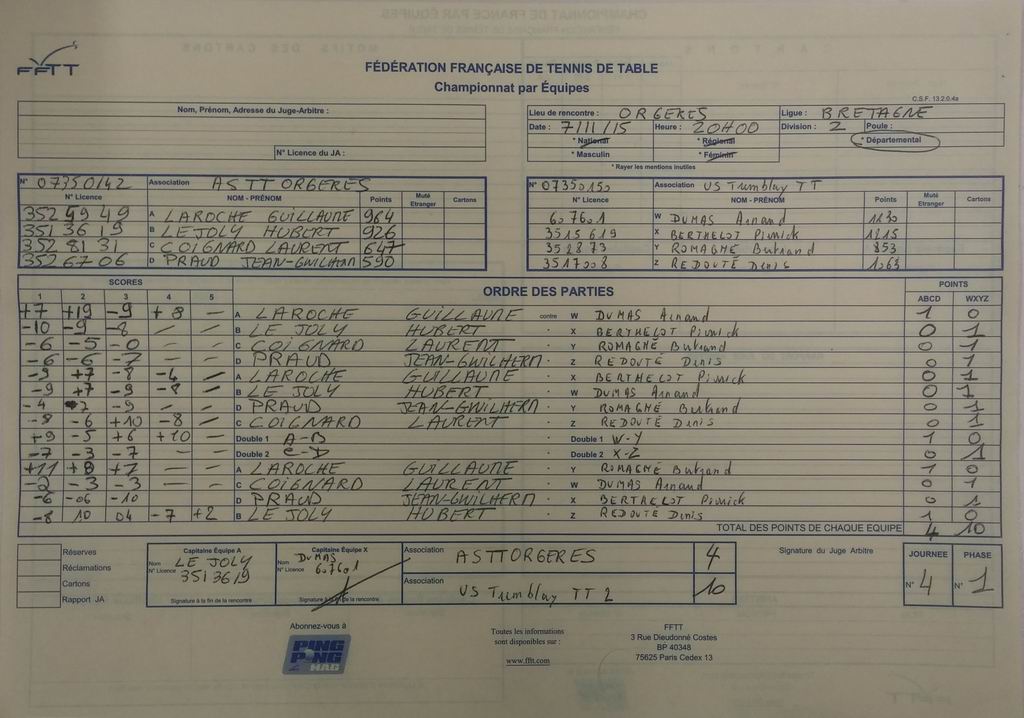 FFTT
FÉDÉRATION FRANÇAISE DE TENNIS DE TABLE
Championnat par Équipes
C.S.F. 13.2.0.4a
Nom, Prénom, Adresse du Juge-Arbitre :
N° Licence du JA :
Lieu de rencontre : ORGERES Ligue : BRETAGNE
Date : 7/11/15 Heure : 20H00 Division : 2 Poule :
* National * Régional * Départemental
* Masculin * Féminin
* Rayer les mentions inutiles
N° 07350142 Association ASTTORGERES
N° Licence NOM - PRÉNOM Points Muté Etranger Cartons
3525949 A LAROCHE GUILLAUME 964
3513619 B LEJOLY HUBERT 926
3528131 C COIGNARD LAURENT 647
3526706 D PRAUD JEAN-GWILHERM 590
N° 07350150 Association US Tremblay TT
N° Licence NOM - PRÉNOM Points Muté Etranger Cartons
607601 W DUMAS Arnand 1130
3515619 X BERTHELOT Pierrick 1215
352873 Y ROMAGNÉ Bertrand 853
3517008 Z REDOUTÉ Denis 1063
SCORES ORDRE DES PARTIES POINTS
1 2 3 4 5 ABCD WXYZ
+7 +19 -9 +8 - A LAROCHE GUILLAUME contre W DUMAS Arnand 1 0
-10 -9 -8 - - B LE JOLY HUBERT X BERTHELOT Pierrick 0 1
-6 -5 -0 - - C COIGNARD LAURENT Y ROMAGNÉ Bertrand 0 1
-6 -6 -7 - - D PRAUD JEAN-GWILHERM Z REDOUTÉ Denis 0 1
-9 +7 -8 -4 - A LAROCHE GUILLAUME X BERTHELOT Pierrick 0 1
-9 +7 -9 -8 - B LE JOLY HUBERT W DUMAS Arnand 0 1
-4 -9 - - D PRAUD JEAN-GWILHERM Y ROMAGNÉ Bertrand 0 1
-8 -6 +10 -8 - C COIGNARD LAURENT Z REDOUTÉ Denis 0 1
+9 -5 +6 +10 - Double 1 A-B Double 1 W-Y 1 0
-7 -3 -7 - - Double 2 C-D Double 2 X-Z 0 1
+11 +8 +7 - - A LAROCHE GUILLAUME Y ROMAGNÉ Bertrand 1 0
-2 -3 -3 - - C COIGNARD LAURENT W DUMAS Arnand 0 1
-6 -06 -10 D PRAUD JEAN-GWILHERM X BERTHELOT Pierrick 0 1
-8 10 04 -7 +2 B LE JOLY HUBERT Z REDOUTÉ Denis 1 0
TOTAL DES POINTS DE CHAQUE EQUIPE 4 10
Réserves
Réclamations
Cartons
Rapport JA
Capitaine Équipe A
Nom LE JOLY
N° Licence 3513619
Signature à la fin de la rencontre
Capitaine Équipe X
Nom DUMAS
N° Licence 607601
Signature à la fin de la rencontre
Association ASTTORGERES 4
Association US Tremblay TT 2 10
Signature du Juge Arbitre
JOURNEE PHASE
N° 4 N° 1
Abonnez-vous à
PING PONG MAG
Toutes les informations
sont disponibles sur :
www.fftt.com
FFTT
3 Rue Dieudonné Costes
BP 40348
75625 Paris Cedex 13